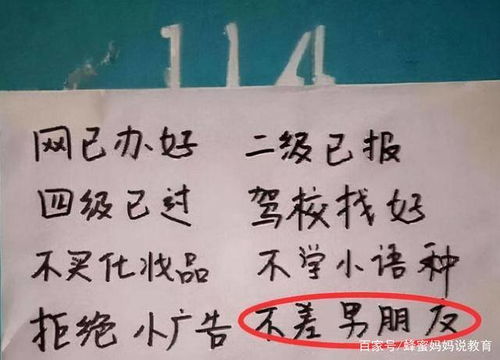 114
网已办好 二级已报
四级已过 驾校找好
不买化妆品 不学小语种
拒绝小广告 不差男朋友
百家号/蜂蜜妈妈说教育